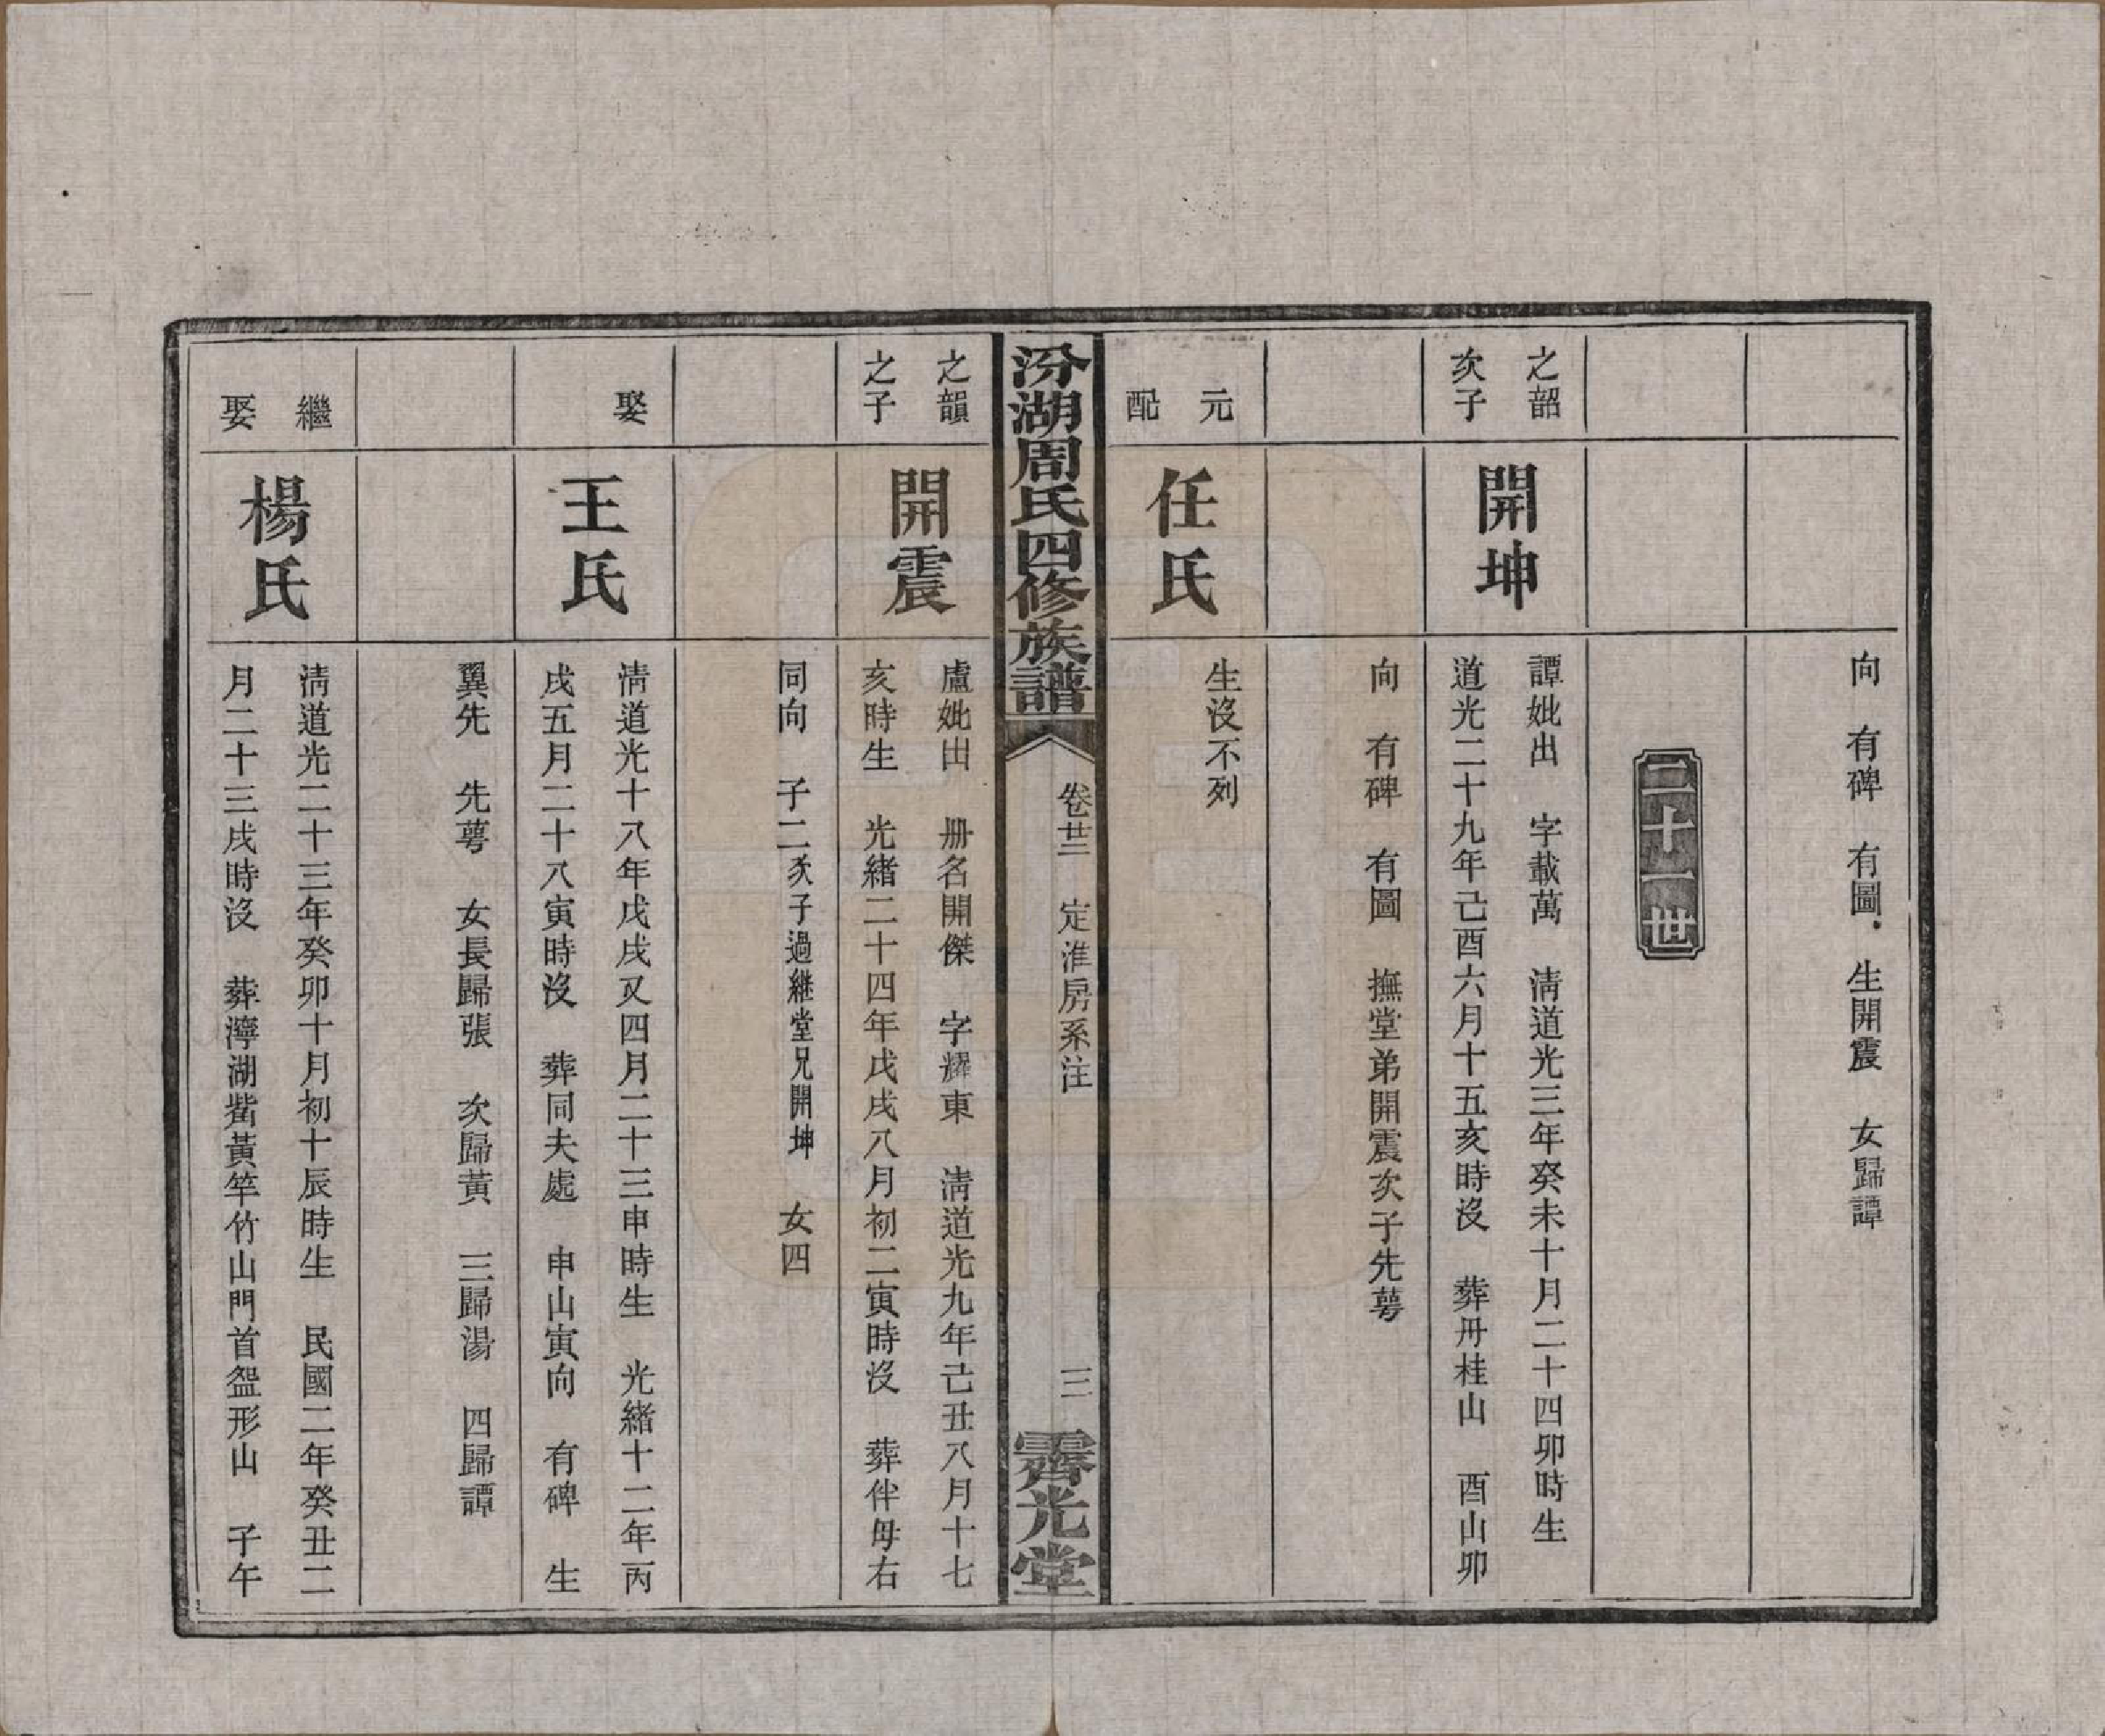 向　有碑　有圖．生開震　女歸譚
二十一世
之韶
次子
開坤
譚妣出　字載萬　淸道光三年癸未十月二十四卯時生
道光二十九年己酉六月十五亥時沒　葬丹桂山　酉山卯
向　有碑　有圖　撫堂弟開震次子先蕚
元
配
任氏
生沒不列
汾湖周氏四修族譜
卷廿三　定淮房系注
三
霽光堂
之韻
之子
開震
盧妣出　册名開傑　字耀東　淸道光九年己丑八月十七
亥時生　光緒二十四年戊戌八月初二寅時沒　葬伴母右
同向　子二次子過繼堂兄開坤　女四
娶
王氏
淸道光十八年戊戌又四月二十三申時生　光緒十二年丙
戌五月二十八寅時沒　葬同夫處　申山寅向　有碑　生
翼先　先蕚　女長歸張　次歸黃　三歸湯　四歸譚
繼
娶
楊氏
淸道光二十三年癸卯十月初十辰時生　民國二年癸丑二
月二十三戌時沒　葬濘湖觜黃竿竹山門首盌形山　子午